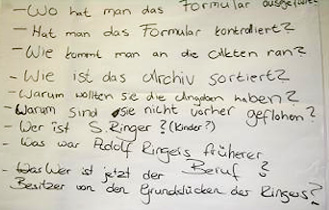 - Wo hat man das Formular ausgefüllt?
- Hat man das Formular kontrolliert?
- Wie kommt man an die Akten ran?
- Wie ist das Archiv sortiert?
- Warum wollten sie die Angaben haben?
- Warum sind sie nicht vorher geflohen?
- Wer ist S. Ringer? (Kinder?)
- Was war Adolf Ringers früherer
Beruf?
- Wer ist jetzt der
Besitzer von den Grundstücken der Ringers?